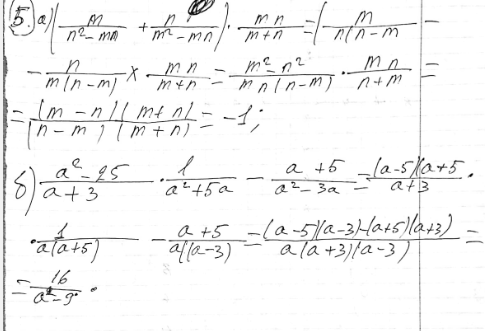 5. а) (m/(n²-mn) + n/(m²-mn)) · mn/(m+n) = (m/(n(n-m) -
- n/(m(n-m)) × mn/(m+n) = (m²-n²)/(mn(n-m)) · mn/(n+m) =
= (m-n)(m+n)/((n-m)(m+n)) = -1;
б) (a²-25)/(a+3) · 1/(a²+5a) - (a+5)/(a²-3a) = (a-5)(a+5/(a+3) ·
· 1/(a(a+5)) - (a+5)/(a(a-3)) = ((a-5)(a-3)-(a+5)(a+3))/(a(a+3)(a-3)) =
= 16/(a²-9) .